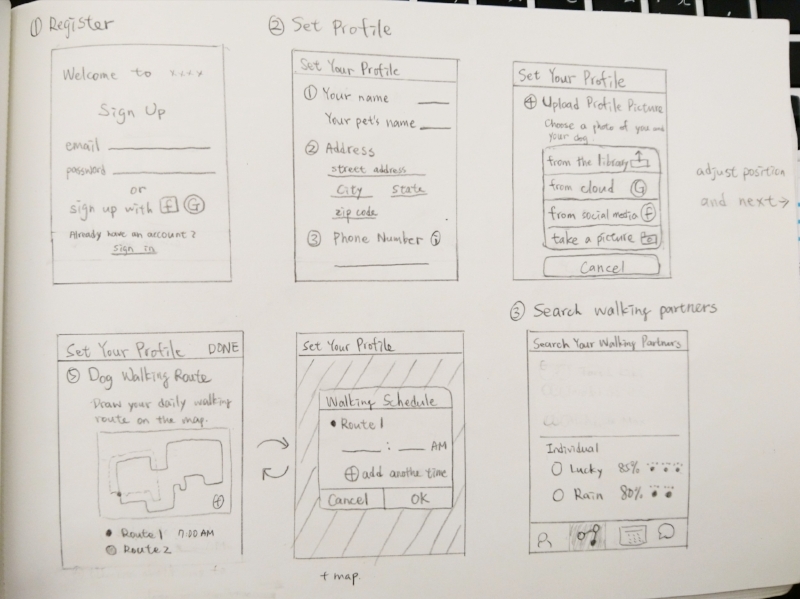 ① Register
Welcome to x.x.x.x
Sign Up
email
password
or
sign up with f G
Already have an account?
sign in
② Set Profile
Set Your Profile
① Your name
Your pet's name
② Address
street address
City State
zip code
③ Phone Number i
Set Your Profile
④ Upload Profile Picture
Choose a photo of you and
your dog
from the library
from cloud G
from social media f
take a picture
Cancel
adjust position
and next →
Set Your Profile DONE
⑤ Dog Walking Route
Draw your daily walking
route on the map.
• Route 1 7:00 AM
Route 2
Set Your Profile
Walking Schedule
• Route 1
: AM
⊕ add another time
Cancel OK
+ map
③ Search walking partners
Search Your Walking Partners
Individual
Lucky 85%
Rain 80%